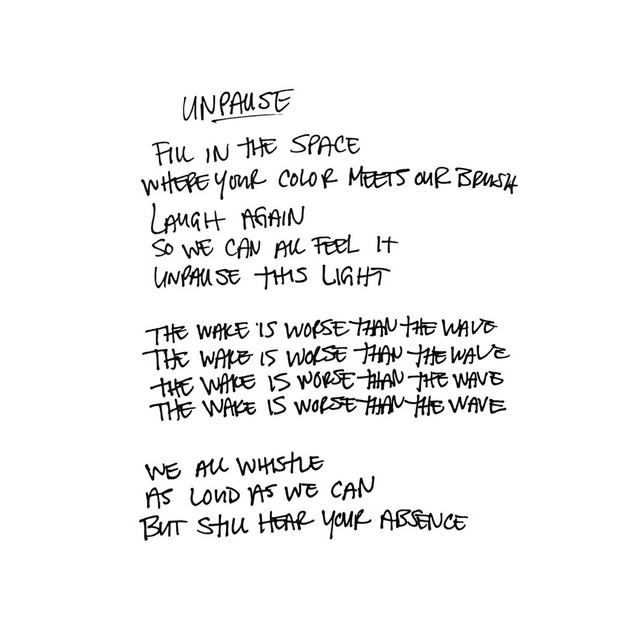 UNPAUSE
FILL IN THE SPACE
WHERE YOUR COLOR MEETS OUR BRUSH
LAUGH AGAIN
SO WE CAN ALL FEEL IT
UNPAUSE THIS LIGHT
THE WAKE IS WORSE THAN THE WAVE
THE WAKE IS WORSE THAN THE WAVE
THE WAKE IS WORSE THAN THE WAVE
THE WAKE IS WORSE THAN THE WAVE
WE ALL WHISTLE
AS LOUD AS WE CAN
BUT STILL HEAR YOUR ABSENCE